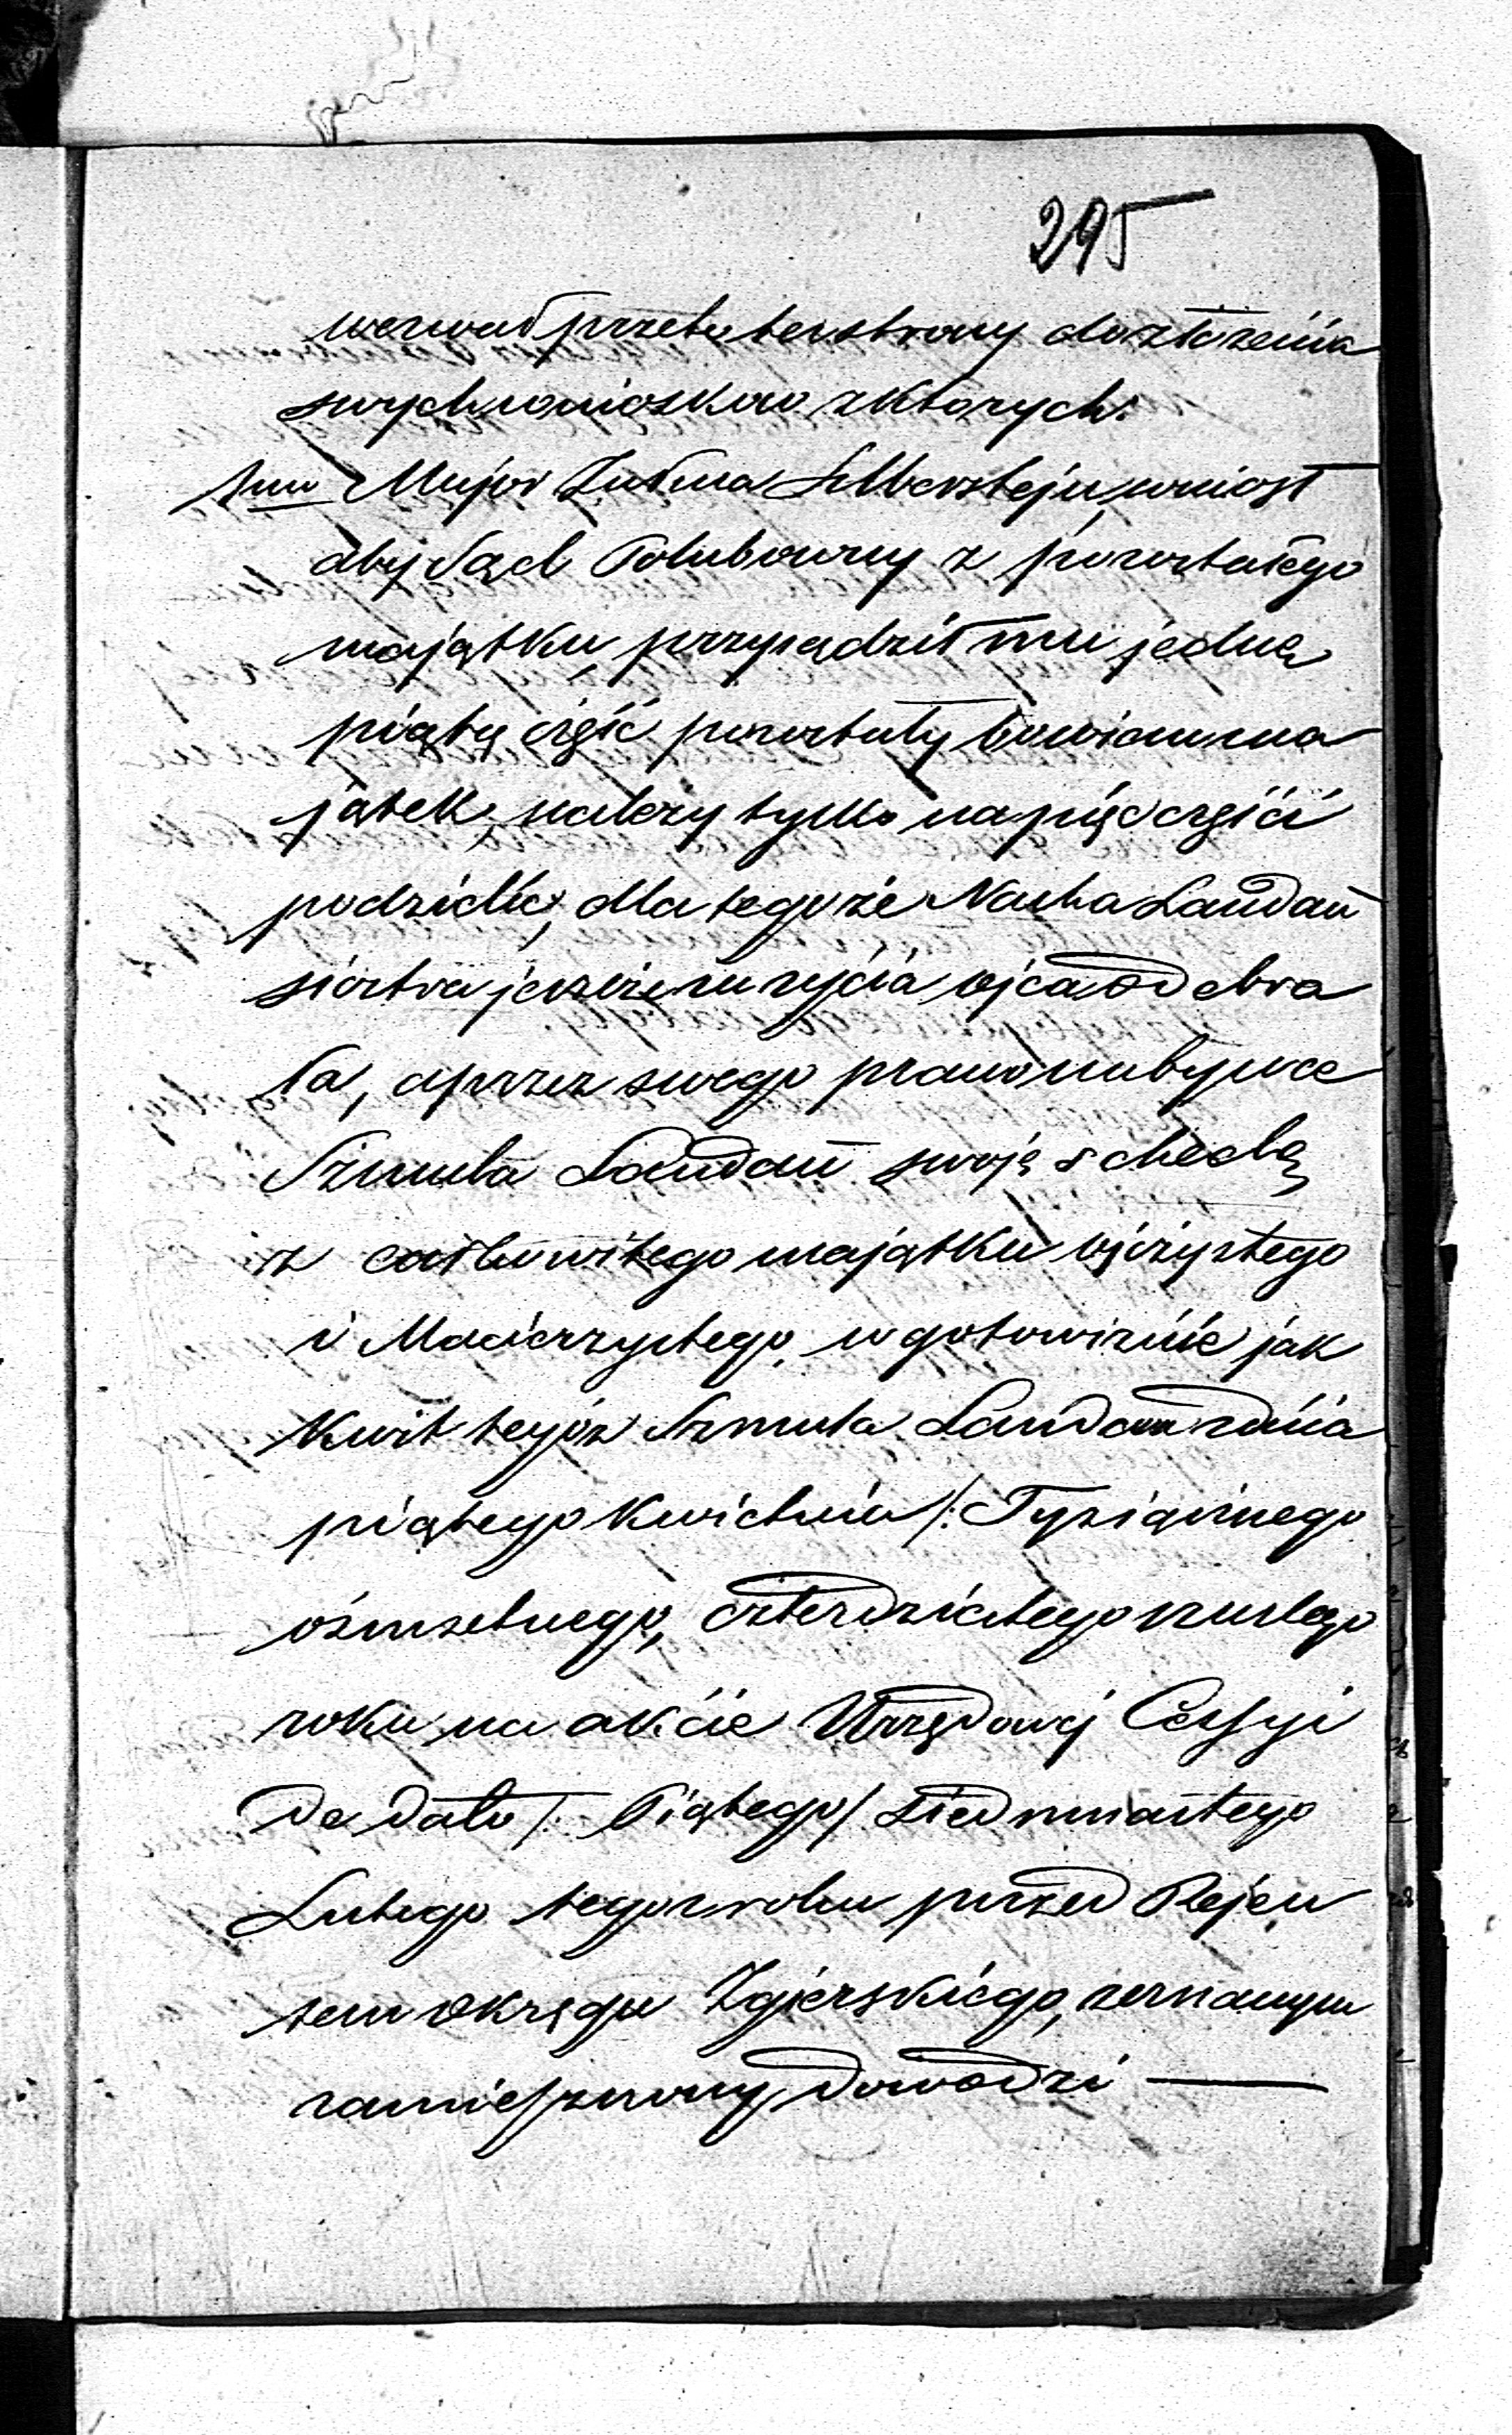 295
wezwał przeto też strony do złożenia
swych wniosków z których:
1mo Major Zelma Silberstejn, wniosł
aby Sąd Polubowny z pozostałego
majątku, przysądził mu jedną
piątą część pozostały bowiem ma
jątek, należy tylko na pięć części
podzielić, dla tego że Nacha Landau
siostra jeszcze za życia ojca odebra
ła, a przez swego prawonabywce
Szmula Landau swoję schedę
z całkowitego majątku ojczystego
i Macierzystego, w gotowiznie jak
Kwit tegoż Szmula Landau z dnia
piątego Kwietnia /: Tysiącznego
ośmsetnego, czterdziestego szustego
roku, na akcie Urzędowej Cessyi
de dato /: Piątego/ Siedmnastego
Lutego tegoż roku przed Rejen
tem Okręgu Zgierskiego, zeznanym
zamieszczony, dowodzi —